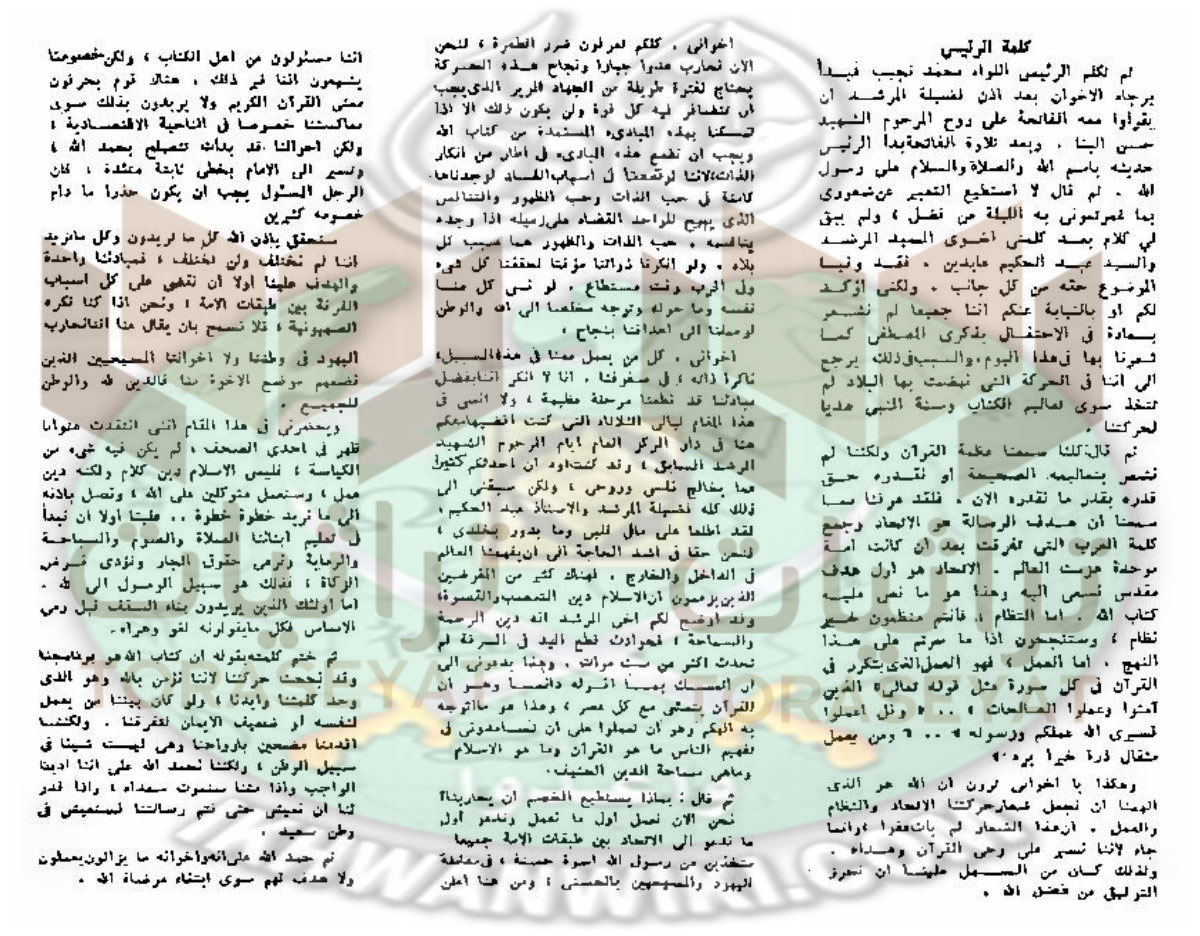 كلمة الرئيسي
ثم تكلم الرئيس اللواء محمد نجيب فبدأ
برجاء الاخوان بعد اذن فضيلة المرشد ان
يقرأوا معه الفاتحة على روح المرحوم الشهيد
حسن البنا . وبعد تلاوة الفاتحة بدأ الرئيس
حديثه باسم الله والصلاة والسلام على رسول
الله . ثم قال لا استطيع التعبير عن شعورى
بما غمرتمونى به الليلة من فضل ، ولم يبق
لي كلام بعد كلمتى اخوى السيد المرشد
والسيد عبد الحكيم عابدين . فقد وفيا
الموضوع حقه من كل جانب . ولكنى اؤكد
لكم او بالنيابة عنكم اننا جميعا لم نشعر
بسعادة فى الاحتفال بذكرى المصطفى كما
شعرنا بها فى هذا اليوم ، والسبب فى ذلك يرجع
الى اننا فى الحركة التى نهضت بها البلاد لم
نتخذ سوى تعاليم الكتاب وسنة النبي هديا
لحركتنا .
ثم قال: كلنا سمعنا عظمة القرآن ولكننا لم
نشعر بتعاليمه الصحيحة او نقدره حق
قدره بقدر ما نقدره الان . فلقد عرفنا مما
سمعنا أن هدف الرسالة هو الاتحاد وجمع
كلمة العرب التى تفرقت بعد أن كانت امة
موحدة هزمت العالم . الاتحاد هو أول هدف
مقدس نسعى اليه وهذا هو ما نص عليه
كتاب الله . اما النظام ، فأنتم منظمون خير
نظام ، وستنجحون اذا ما سرتم على هذا
النهج . أما العمل ، فهو العمل الذى يتكرر فى
القرآن فى كل سورة مثل قوله تعالى « الذين
آمنوا وعملوا الصالحات » ... « وقل اعملوا
فسيرى الله عملكم ورسوله » ... « ومن يعمل
مثقال ذرة خيرا يره »
وهكذا يا اخوانى ترون أن الله هو الذى
الهمنا ان نجعل شعار حركتنا الاتحاد والنظام
والعمل . ان هذا الشعار لم يأت عفوا وانما
جاء لاننا نسير على وحى القرآن وهداه .
ولذلك كان من السهل علينا ان نحرز
التوفيق من فضل الله .
اخوانى . كلكم تعرفون ضرر الطفرة ، فنحن
الان نحارب عدوا جبارا ونجاح هذه الحركة
يحتاج لفترة طويلة من الجهاد المرير الذى يجب
أن تتضافر فيه كل قوة ولن يكون ذلك الا اذا
تمسكنا بهذه المبادىء المستمدة من كتاب الله
ويجب ان نضع هذه المبادىء فى اطار من انكار
الذات لاننا لو تمعنا فى أسباب الفساد لوجدناها
كامنة فى حب الذات وحب الظهور والتنافس
الذى يهيج للواحد القضاء على زميله اذا وجده
ينافسه . حب الذات والظهور هما سبب كل
بلاء . ولو انكرنا ذواتنا مؤقتا لحققنا كل شىء
وفى اقرب وقت مستطاع . لو نسى كل منا
نفسه وما حوله وتوجه مخلصا الى الله والوطن
لوصلنا الى اهدافنا بنجاح ،
اخوانى . كل من يعمل معنا فى هذا السبيل،
ناكرا ذاته ، فى صفوفنا . انا لا انكر اننا بفضل
مبادئنا قد قطعنا مرحلة عظيمة ، ولا انسى فى
هذا المقام ليالى الثلاثاء التى كنت اقضيها معكم
هنا فى دار المركز العام ايام المرحوم الشهيد
المرشد السابق ، وقد كنت اود ان احدثكم كثيرا
عما يخالج نفسى وروحى ، ولكن سبقنى الى
ذلك كله فضيلة المرشد والاستاذ عبد الحكيم ،
لقد اطلعا على مافى نفسى وما يدور بخلدى ،
فنحن حقا فى اشد الحاجة الى ان يفهمنا العالم
فى الداخل والخارج . فهناك كثير من المغرضين
الذين يزعمون ان الاسلام دين التعصب والقسوة
وقد أوضح لكم اخى المرشد انه دين الرحمة
والسماحة ، فحوادث قطع اليد فى السرقة لم
تحدث اكثر من ست مرات . وهذا يدعونى الى
أن اتمسك بهما اقوله دائما وهو أن
القرآن يتمشى مع كل عصر ، وهذا هو ما اتوجه
به اليكم وهو أن تعملوا على أن تساعدونى فى
تفهيم الناس ما هو القرآن وما هو الاسلام
وماهى سماحة الدين الحنيف.
ثم قال : بماذا يستطيع الخصم ان يحاربنا؟
نحن الان نعمل أول ما نعمل وندعو أول
ما ندعو الى الاتحاد بين طبقات الامة جميعا
متخذين من رسول الله اسوة حسنة ، فى معاملة
اليهود والمسيحيين بالحسنى ، ومن هنا اعلن
اننا مسئولون من أهل الكتاب ، ولكن خصومتنا
يتهمون اننا غير ذلك . هناك قوم يحرفون
معنى القرآن الكريم ولا يريدون بذلك سوى
معاكستنا خصوصا فى الناحية الاقتصادية ،
ولكن احوالنا قد بدأت تنصلح بحمد الله ،
ونسير الى الامام بخطى ثابتة متئدة ، فان
الرجل المسئول يجب أن يكون حذرا ما دام
خصومه كثيرين
سنحقق باذن الله كل ما تريدون وكل مانريد
اننا لم نختلف ولن نختلف ، فمبادئنا واحدة
والهدف علينا أولا أن نقضى على كل أسباب
الفرقة بين طبقات الامة ، ونحن اذا كنا نكره
الصهيونية ، فلا نسمح بان يقال عنا اننا نحارب
اليهود فى وطننا ولا اخواننا المسيحيين الذين
نضعهم موضع الاخوة منا فالدين لله والوطن
للجميع .
ويحضرنى فى هذا المقام اننى انتقدت عنوانا
ظهر فى احدى الصحف ، لم يكن فيه شىء من
الكياسة ، فليس الاسلام دين كلام ولكنه دين
عمل ، وسنعمل متوكلين على الله ، ونصل باذنه
الى ما نريد خطوة خطوة .. علينا أولا ان نبدأ
فى تعليم ابنائنا الصلاة والصوم والسباحة
والرماية ونرعى حقوق الجار ونؤدى فرض
الزكاة ، فذلك هو سبيل الرسول الى الله .
اما أولئك الذين يريدون بناء السقف قبل رمى
الاساس فكل مايقولونه لغو وهراء.
ثم ختم كلمته بقوله ان كتاب الله هو برنامجنا
وقد نجحت حركتنا لاننا نؤمن بالله وهو الذى
وحد كلمتنا وأيدنا ، ولو كان بيننا من يعمل
لنفسه أو ضعيف الايمان لتفرقنا . ولكننا
اقدمنا مضحين بارواحنا وهى ليست شيئا فى
سبيل الوطن ، ولكننا نحمد الله على اننا ادينا
الواجب واذا متنا سنموت سعداء ، واذا قدر
لنا أن نعيش حتى نتم رسالتنا فسنعيش فى
وطن سعيد .
ثم حمد الله على انه واخوانه ما يزالون يعملون
ولا هدف لهم سوى ابتغاء مرضاة الله .
تراثيات
تراثيات
TORASEYAT
TORASEYAT
وأعدوا
IKHWANWIKI.COM